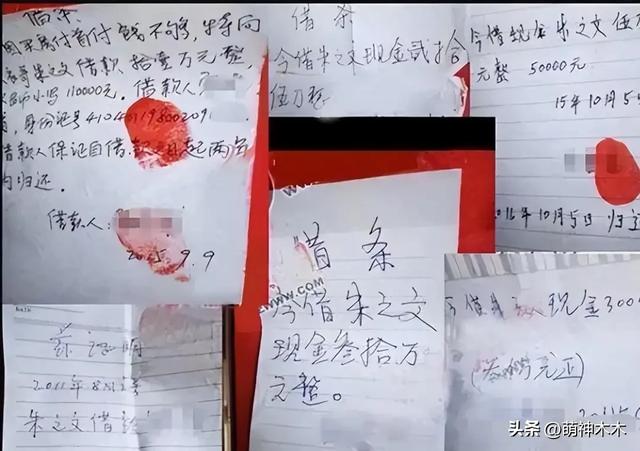 借条
因买房付首付钱不够,特向
朱之文借款拾壹万元整,
小写110000元。借款人
身份证号
借款人保证自借款之日起两年
内归还。
借款人:
9.9
借条
今借朱之文现金贰拾
伍万整
今借现金朱之文伍万
元整 50000元
15年10月5日
2016年10月5日 归还
借条
今借朱之文
现金叁拾万
元整。
证明
2011年8月
朱之文借给
今借朱 现金300
WWW.COM
头条 @萌神木木